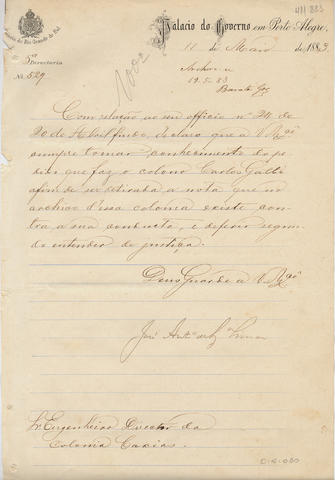 411 883
Palacio do Governo em Porto Alegre,
11 de Maio de 1883
Provincia do Rio Grande do Sul
5ª Directoria
Nº 529
Archive-se
19.5.83
Barata Góes
Com relação ao seu officio nº 214 de
20 de Abril findo, declaro que a V. Sª
cumpre tomar conhecimento do pe-
dido que faz o colono Carlos Gatti
afim de ser retirada a nota que no
archivo d'essa colonia existe con-
tra a sua conducta, e deferir segun-
do entender de justiça.
Deus Guarde a V. Sª
José Antº de
Sr. Engenheiro Director da
Colonia Caxias.